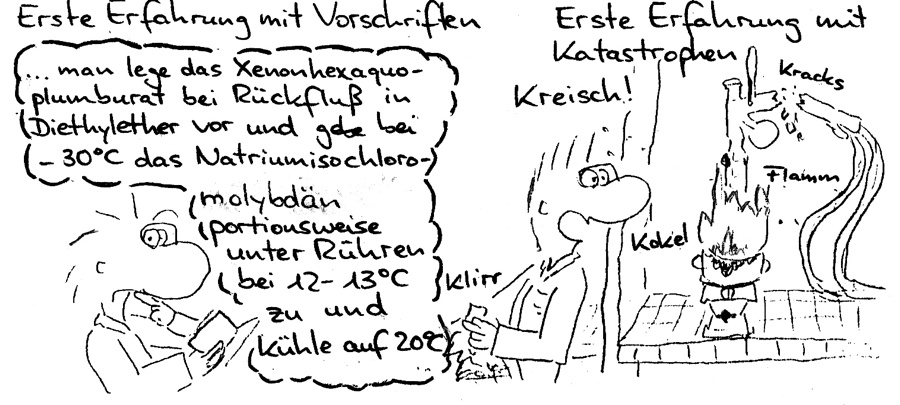 Erste Erfahrung mit Vorschriften
... man lege das Xenonhexaquo-
plumburat bei Rückfluß in
Diethylether vor und gebe bei
-30°C das Natriumisochloro-
molybdän
portionsweise
unter Rühren
bei 12-13°C
zu und
kühle auf 20°C
Erste Erfahrung mit
Katastrophen
Kreisch!
Kracks
Flamm
Kokel
Klirr